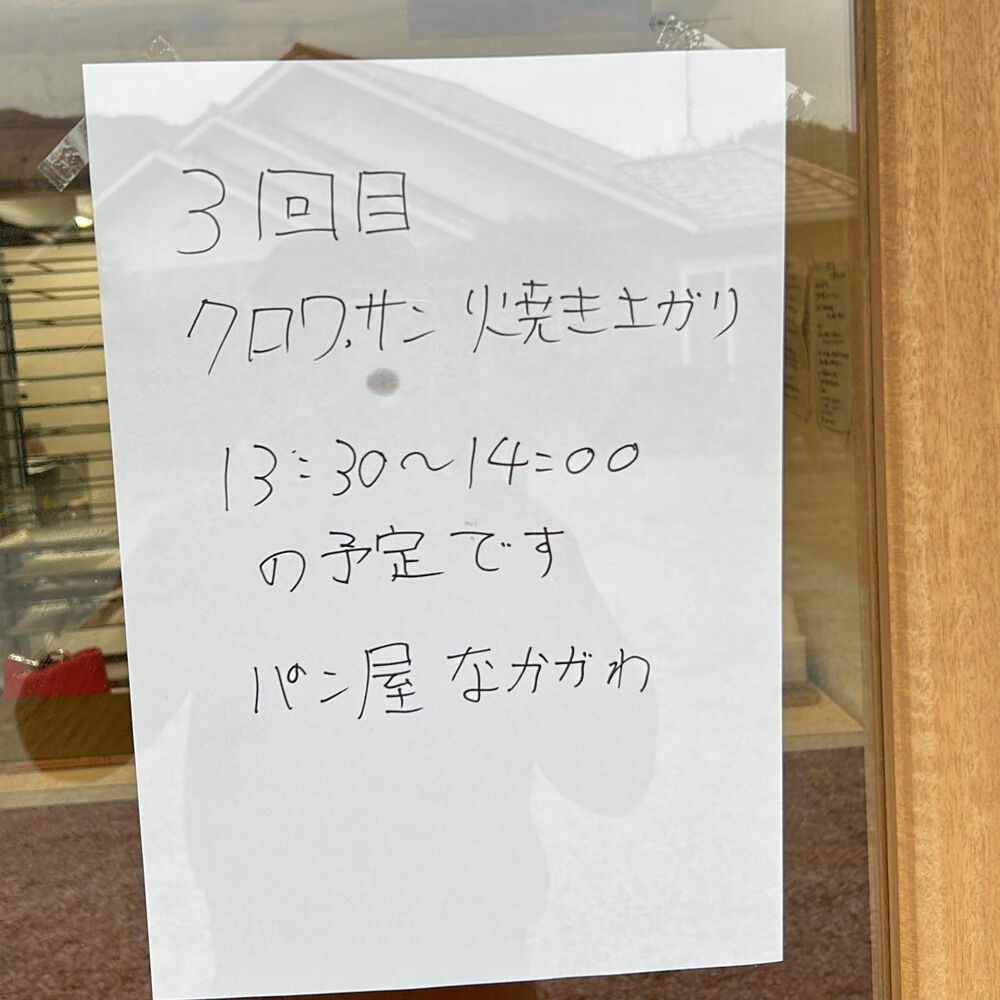 3回目
クロワッサン 焼き上がり
13:30〜14:00
の予定です
パン屋 なかがわ